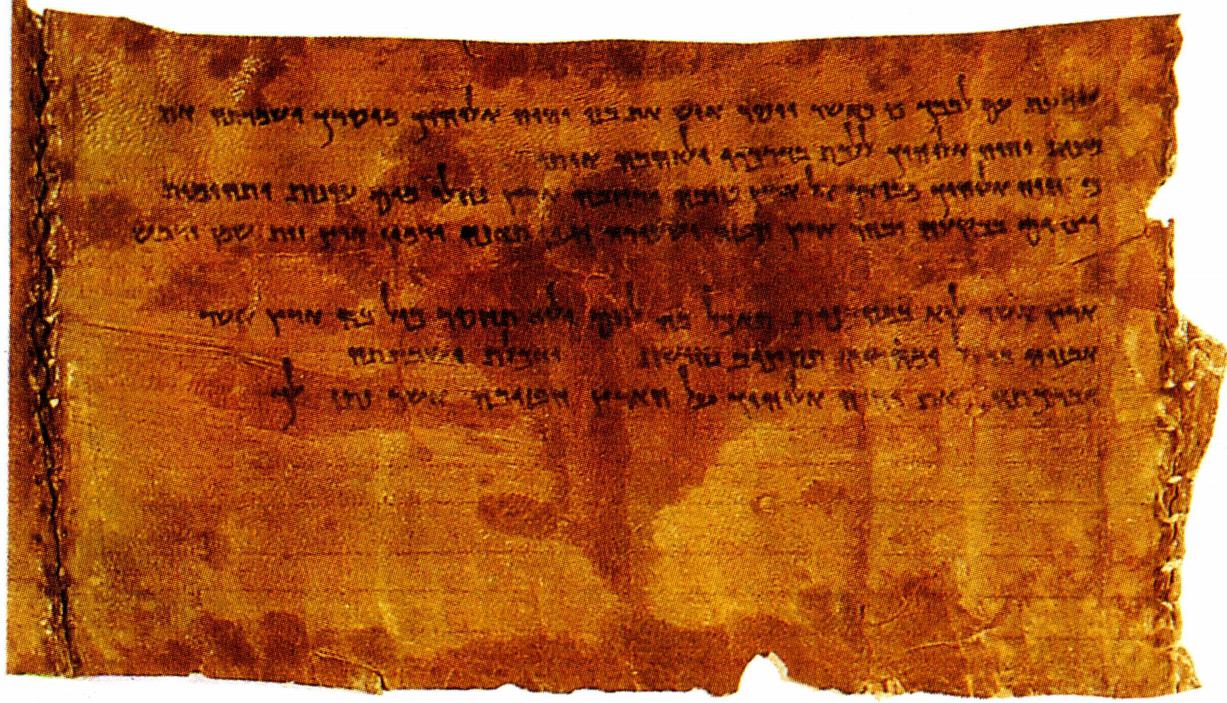 וידעת עם לבבך כי כאשר ייסר איש את בנו יהוה אלוהיך מיסרך ושמרתה את
מצות יהוה אלוהיך ללכת בדרכיו ולאהבה אותו
כי יהוה אלוהיך מביאך אל ארץ טובה ורחבה ארץ נחלי מים עינות ותהומות
יוצאים בבקעה ובהר ארץ חטה ושעורה גפן תאנה ורמון ארץ זית שמן ודבש
ארץ אשר לוא במסכנות תאכל בה לחם ולוא תחסר כול בה ארץ אשר
אבניה ברזל ומהרריה תחצוב נחושת ואכלת ושבעתה
וברכתה את יהוה אלוהיך על הארץ הטובה אשר נתן לך